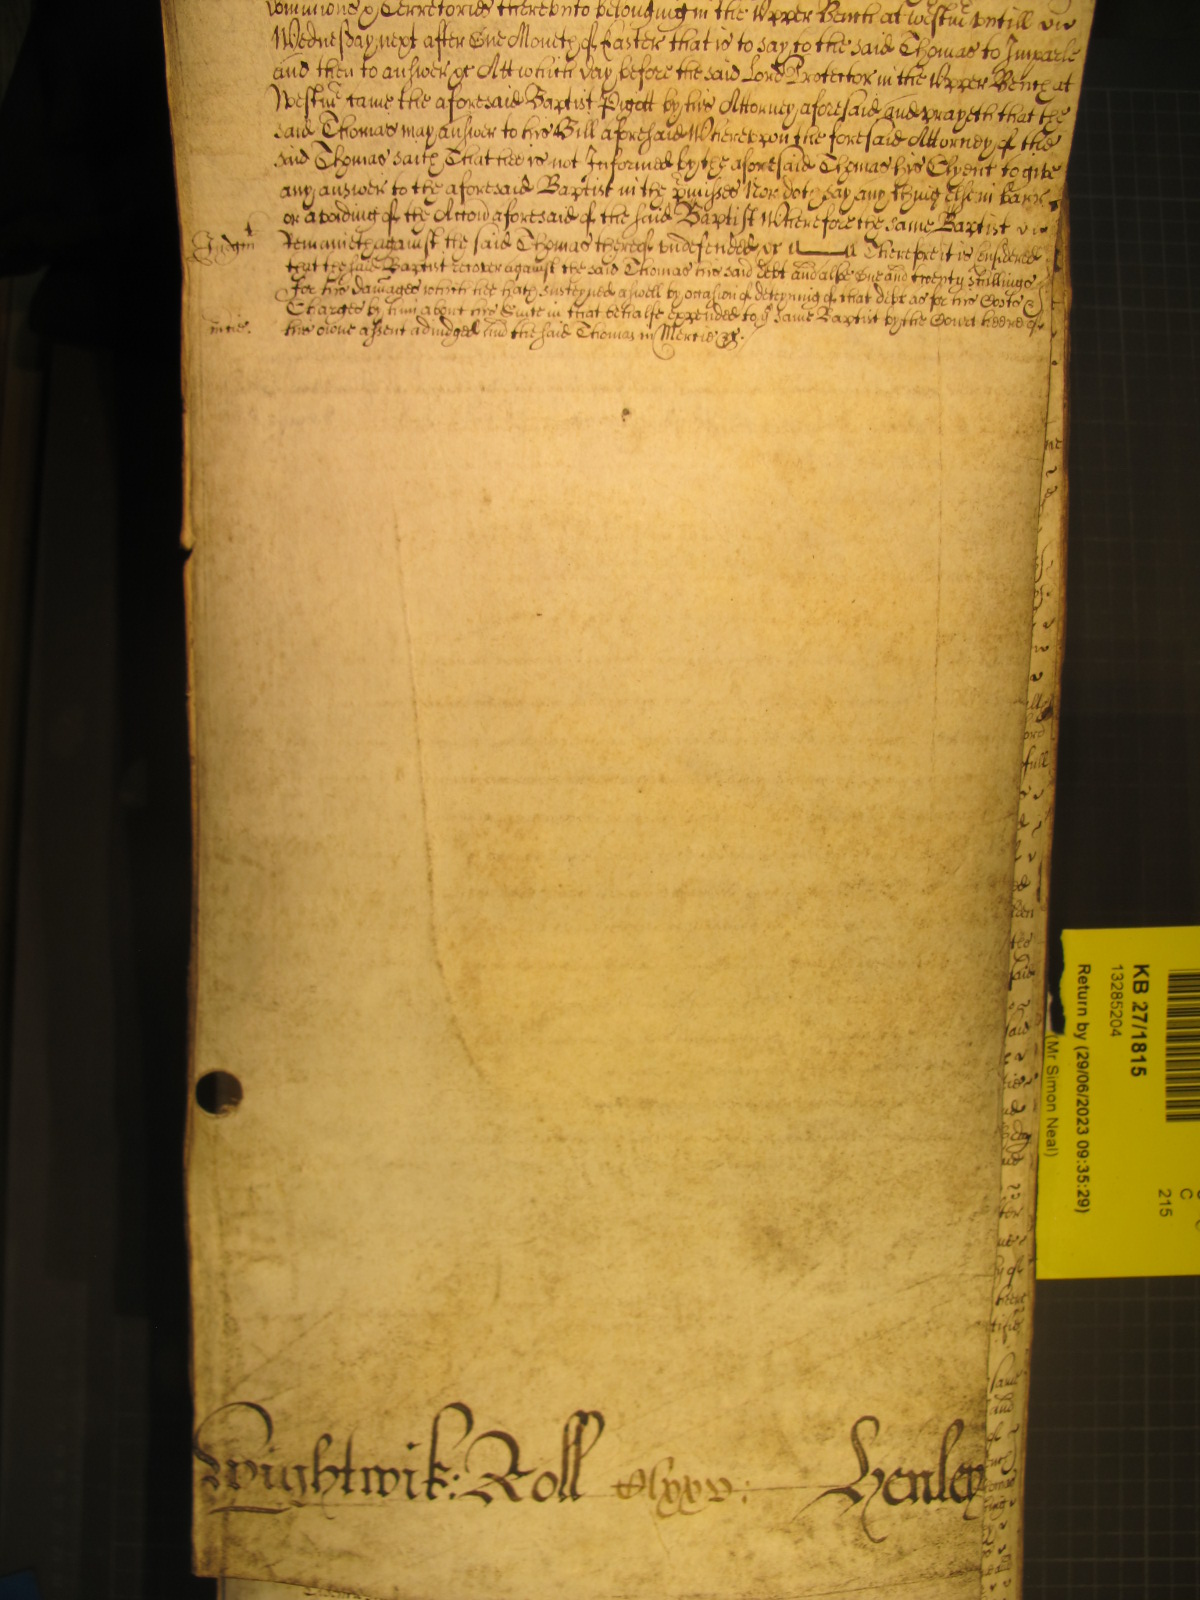 dominions & Terretories therevnto belonging in the Vpper Bench at Westm̄ vntill
Wednesday next after One Moneth of Easter that is to say to the said Thomas to Imparle
and then to answer &c Att which day before the said Lord Protector in the Vpper Bench at
Westm̄ came the aforesaid Baptist Pigott by his Attorney aforesaid and prayeth that the
said Thomas may answer to his Bill aforesaid Wherevpon the foresaid Attorney of the
said Thomas saith That hee is not Informed by the aforesaid Thomas his Clyent to give
any answer to the aforesaid Baptist in the p̄misses Nor doth say any thing else in barr
or avoiding of the Accōn aforesaid of the said Baptist Wherefore the same Baptist
Judgm̄t
remaineth against the said Thomas thereof vndefended &c Therefore it is Considered
that the said Baptist recover against the said Thomas his said debt and alsoe one and twenty shillings
for his damages which hee hath susteyned aswell by occasion of deteyning of that debt as for his Costs &
Charges by him about his Suite in that behalfe expended to yͤ same Baptist by the Court heere of
m̄cie.
his owne assent adiudged And the said Thomas in Mercie &c.
Wightwik: Roll Clxxv: Henley
KB 27/1815
13285204
Return by (29/06/2023 09:35:29)
(Mr Simon Neal)
C
215